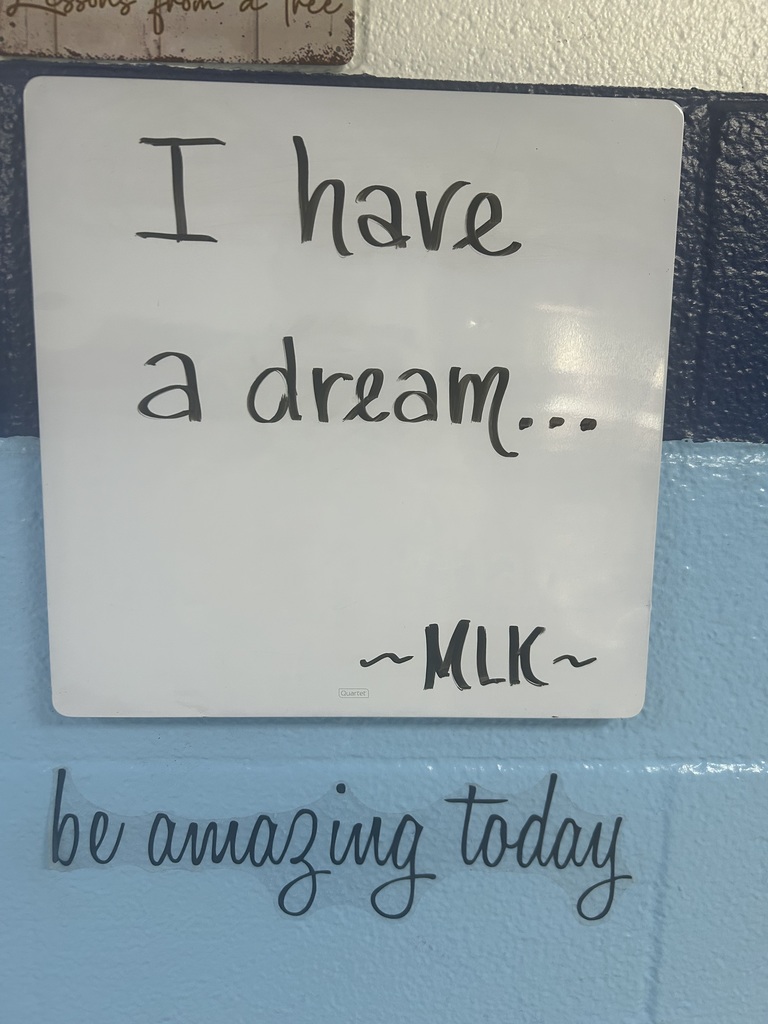 Lessons from a Tree
I have
a dream...
~MLK~
Quartet
be amazing today